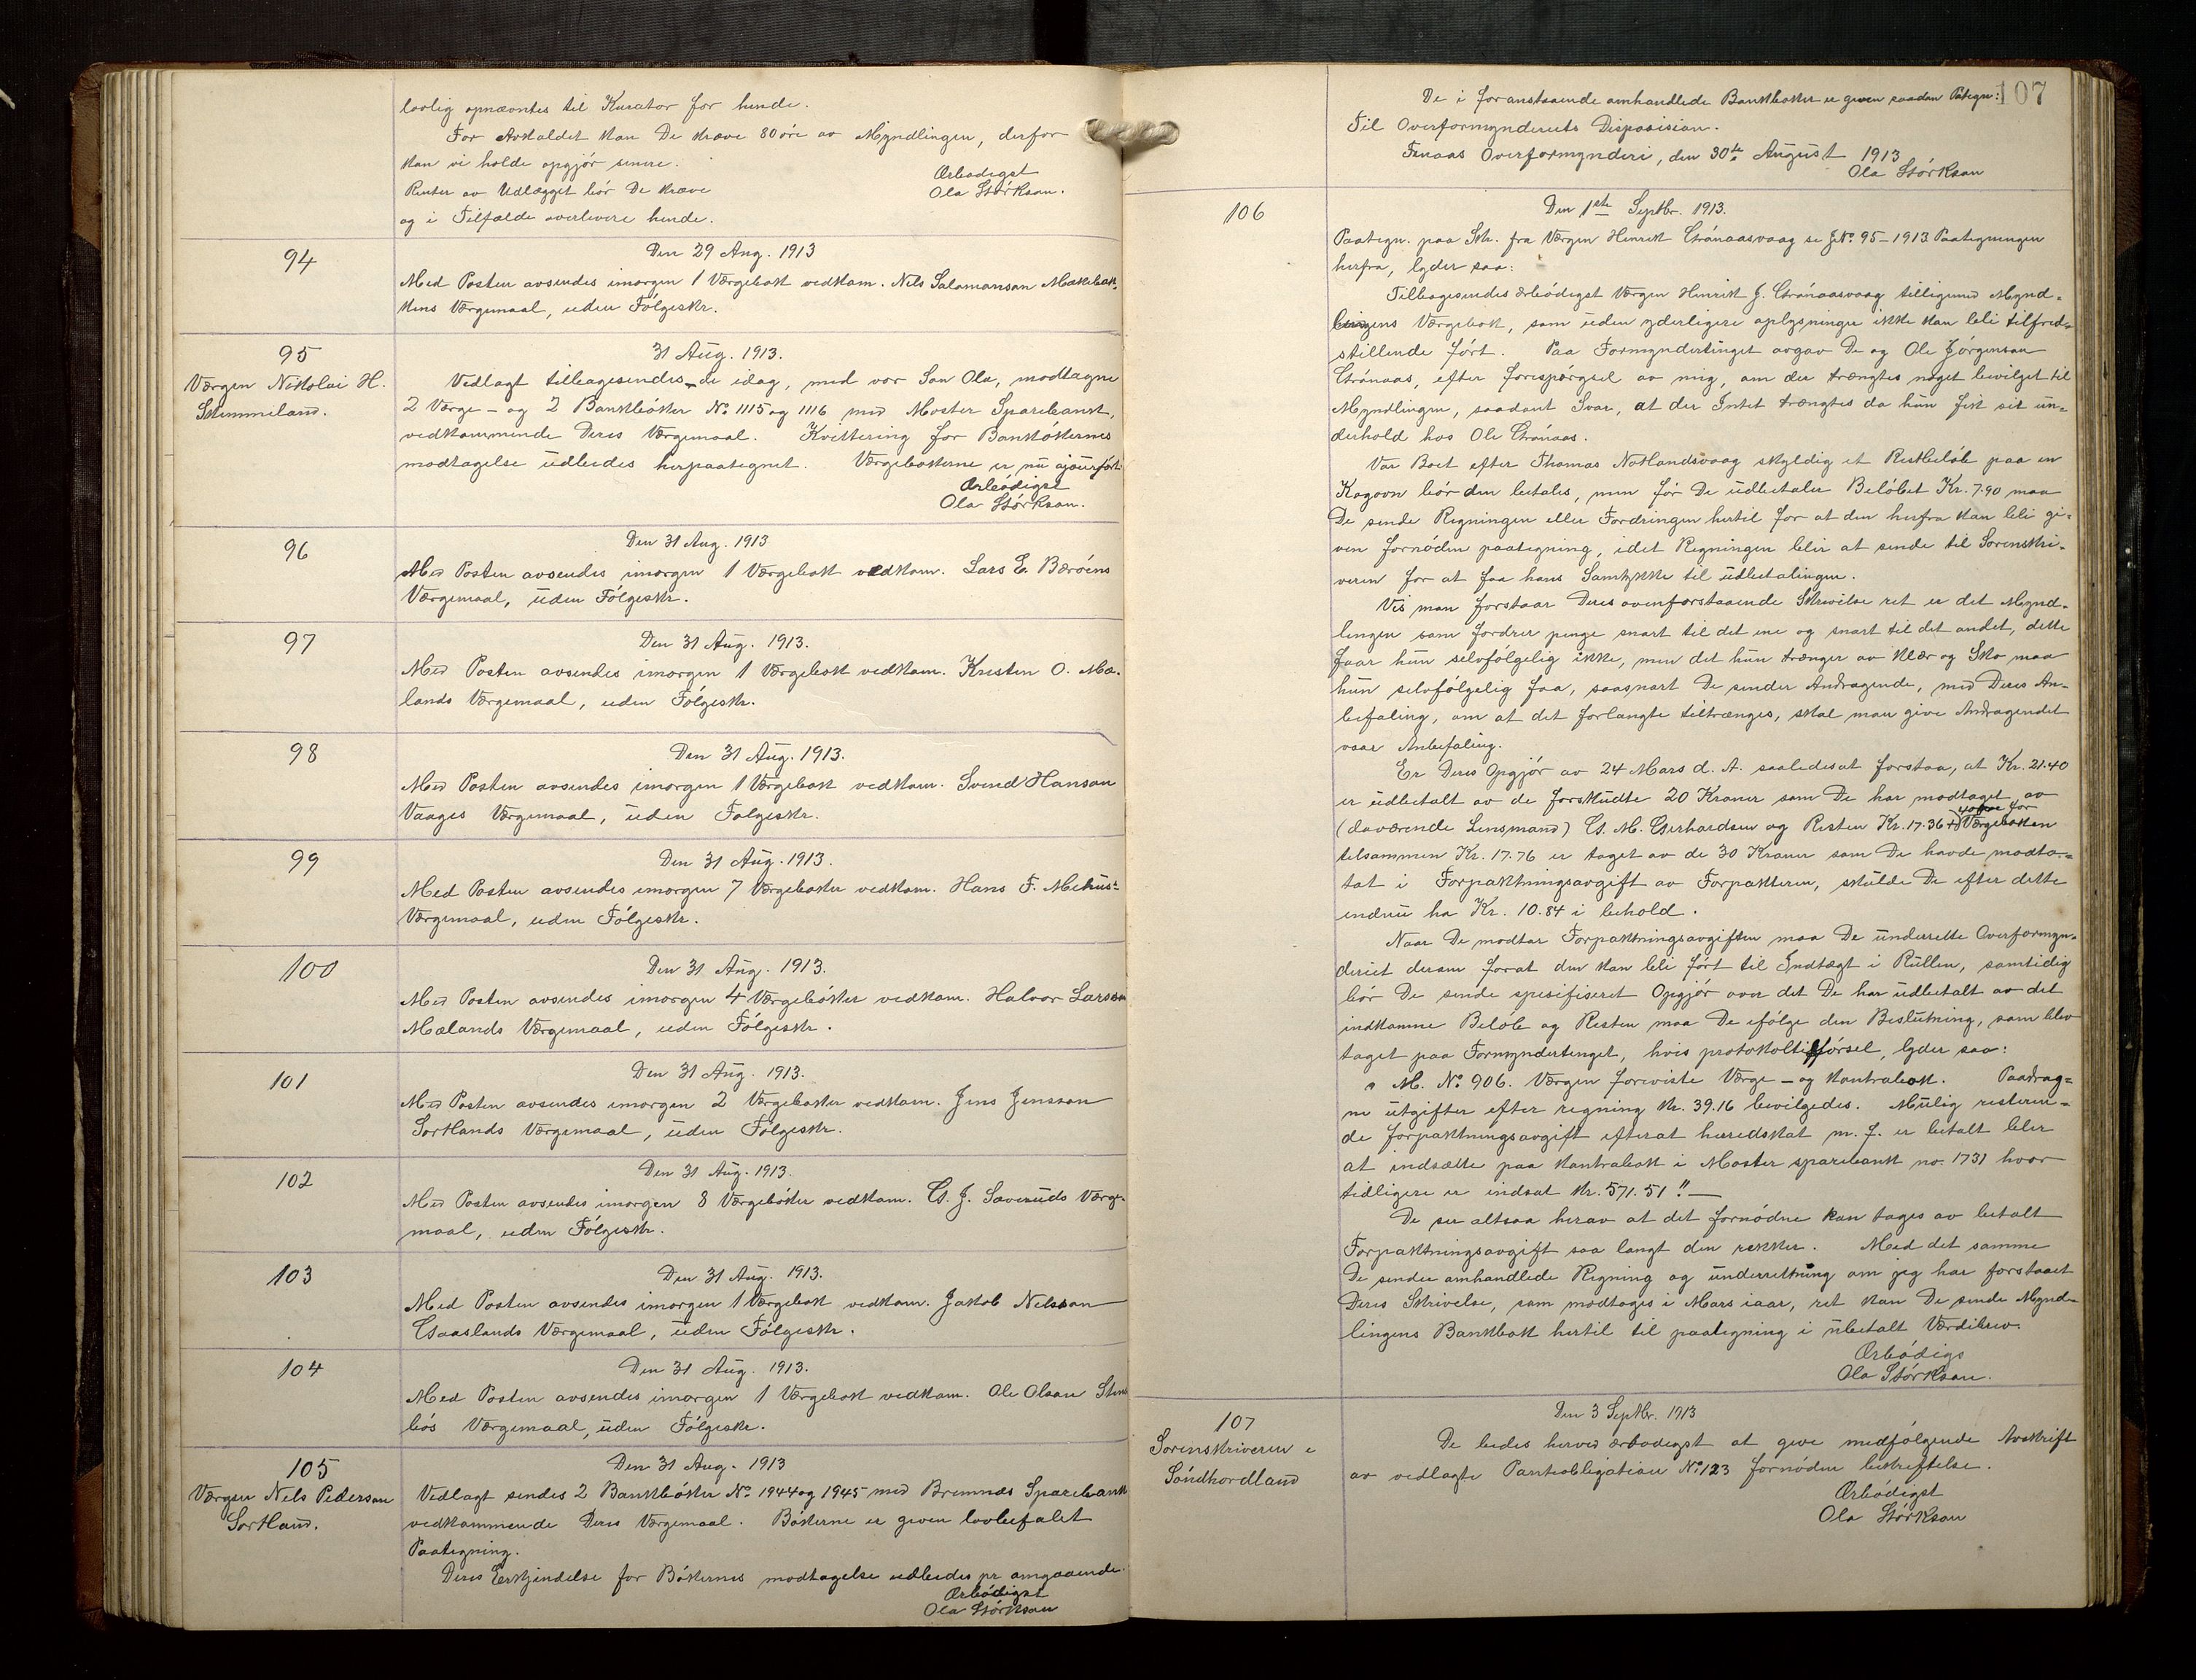 lovlig opnævntes til Kurator for hende.
For Avkaldet kan De kræve 80 øre av Myndlingen, derfor
kan vi holde opgjør senere.
Ærbødigst
Renter av Udlægget bør De kræve
Ola Størkson.
og i Tilfælde overlevere hende.
94
Den 29 Aug. 1913
Med Posten avsendes imorgen 1 Værgebok vedkom. Nils Salamonson Mækebak-
kens Værgemaal, uden Følgeskr.
95
Værgen Nikolai H.
Skimmeland.
31 Aug. 1913.
Vedlagt tilbagesendes de idag, med vor Søn Ola, modtagne
2 Værge- og 2 Bankbøker No. 1115 og 1116 med Moster Sparebank,
vedkommende Deres Værgemaal. Kvittering for Bankbøkernes
modtagelse udbedes herpaategnet. Værgebøkerne er nu ajourført.
Ærbødigst
Ola Størkson.
96
Den 31 Aug. 1913
Med Posten avsendes imorgen 1 Værgebok vedkom. Lars E. Bærøens
Værgemaal, uden Følgeskr.
97
Den 31 Aug. 1913.
Med Posten avsendes imorgen 1 Værgebok vedkom. Kristen O. Mæ-
lands Værgemaal, uden Følgeskr.
98
Den 31 Aug. 1913.
Med Posten avsendes imorgen 1 Værgebok vedkom. Svend Hanson
Vaages Værgemaal, uden Følgeskr.
99
Den 31 Aug. 1913.
Med Posten avsendes imorgen 7 Værgebøker vedkom. Hans F. Mehus'
Værgemaal, uden Følgeskr.
100
Den 31 Aug. 1913.
Med Posten avsendes imorgen 4 Værgebøker vedkom. Halvor Larsson
Mælands Værgemaal, uden Følgeskr.
101
Den 31 Aug. 1913.
Med Posten avsendes imorgen 2 Værgebøker vedkom. Jens Jensson
Sortlands Værgemaal, uden Følgeskr.
102
Den 31 Aug. 1913.
Med Posten avsendes imorgen 8 Værgebøker vedkom. G. J. Saveruds Værge-
maal, uden Følgeskr.
103
Den 31 Aug. 1913.
Med Posten avsendes imorgen 1 Værgebok vedkom. Jakob Nelsson
Gaaslands Værgemaal, uden Følgeskr.
104
Den 31 Aug. 1913.
Med Posten avsendes imorgen 1 Værgebok vedkom. Ole Olson Stens
bøs Værgemaal, uden Følgeskr.
105
Værgen Nels Pederson
Sortland.
Den 31 Aug. 1913
Vedlagt sendes 2 Bankbøker No. 1944 og 1945 med Bremnes Sparebank
vedkommende Deres Værgemaal. Bøkerne er given lovbefalet
Paategning.
Deres Erkjendelse for Bøkernes modtagelse udbedes pr omgaaende.
Ærbødigst
Ola Størkson
107
De i foranstaaende omhandlede Bankbøker er given saadan Pategn:
Til Overformynderiets Disposision.
Finaas Overformynderi, den 30te August 1913
Ola Størkson
106
Den 1ste Septbr. 1913.
Paategn. paa Skr. fra Værgen Henrik Grønaasvaag se J.No. 95-1913. Paategningen
herfra, lyder saa:
Tilbagesendes ærbødigst Værgen Henrik J. Grønaasvaag tilligemed Mynd-
lingens Værgebok, som uden yderligere oplysninger ikke kan bli tilfreds-
stillende ført. Paa Formyndertinget avgav De og Ole Jørgenson
Grønaas, efter forespørgsel av mig, om der trængtes noget bevilget til
Myndlingen, saadant Svar, at der Intet trængtes da hun fik sit un-
derhold hos Ole Grønaas.
Var Boet efter Thomas Notlandsvaag skyldig et Restbeløb paa en
Kogovn bør den betales, men før De udbetaler Beløbet Kr. 7.90 maa
De sende Regningen eller Fordringen hertil for at den herfra kan bli gi-
ven fornøden paategning, idet Regningen blir at sende til Sorenskri-
veren for at faa hans Samtykke til udbetalingen.
Vis man forstaar Deres ovenforstaaende Skrivelse ret er det Mynd-
lingen som fordrer penge snart til det ene og snart til det andet, dette
faar hun selvfølgelig ikke, men det hun trænger av Klær og Sko maa
hun selvfølgelig faa, saasnart De sender Andragende, med Deres An-
befaling, om at det forlangte tiltrænges, skal man give Andragendet
vaar Anbefaling.
Er Deres Opgjør av 24 Mars d. A. saaledes at forstaa, at Kr. 21.40
er udbetalt av de forskudte 20 Kroner som De har modtaget av
40 øre for
(daværende Lensmand) G. M. Gerhardsen og Resten Kr. 17.36 + Værgeboken
tilsammen Kr. 17.76 er taget av de 30 Kroner som De havde modta-
tat i Forpaktningsavgift av Forpakteren, skulde De efter dette
endnu ha Kr. 10.84 i behold.
Naar De modtar Forpaktningsavgiften maa De underrette Overformyn-
deriet derom forat den kan bli ført til Indtægt i Rullen, samtidig
bør De sende spesifiseret Opgjør over det De har udbetalt av det
indkomne Beløb og Resten maa De ifølge den Beslutning, som blev
taget paa Formyndertinget, hvis protokoltilførsel, lyder saa:
" M. No. 906. Værgen foreviste Værge- og kontrabok. Paadrag-
ne utgifter efter regning kr. 39.16 bevilgedes. Mulig resteren-
de forpaktningsavgift efterat herredskat m. f. er betalt blir
at indsætte paa kontrabok i Moster sparebank no. 1731 hvor
tidligere er indsat kr. 571.51"! —
De ser altsaa herav at det fornødne kan tages av betalt
Forpaktningsavgift saa langt den rekker. Med det samme
De sender omhandlede Regning og underretning om jeg har forstaaet
Deres Skrivelse, som modtoges i Mars iaar, ret kan De sende Mynd-
lingens Bankbok hertil til paategning i ubetalt Værdibrev.
Ærbødigs
Ola Størkson.
107
Sorenskriveren i
Søndhordland
Den 3 Septbr. 1913
De bedes herved ærbødigst at give medfølgende Avskrift
av vedlagte Pantobligation No. 123 fornøden bekreftelse.
Ærbødigst
Ola Størkson